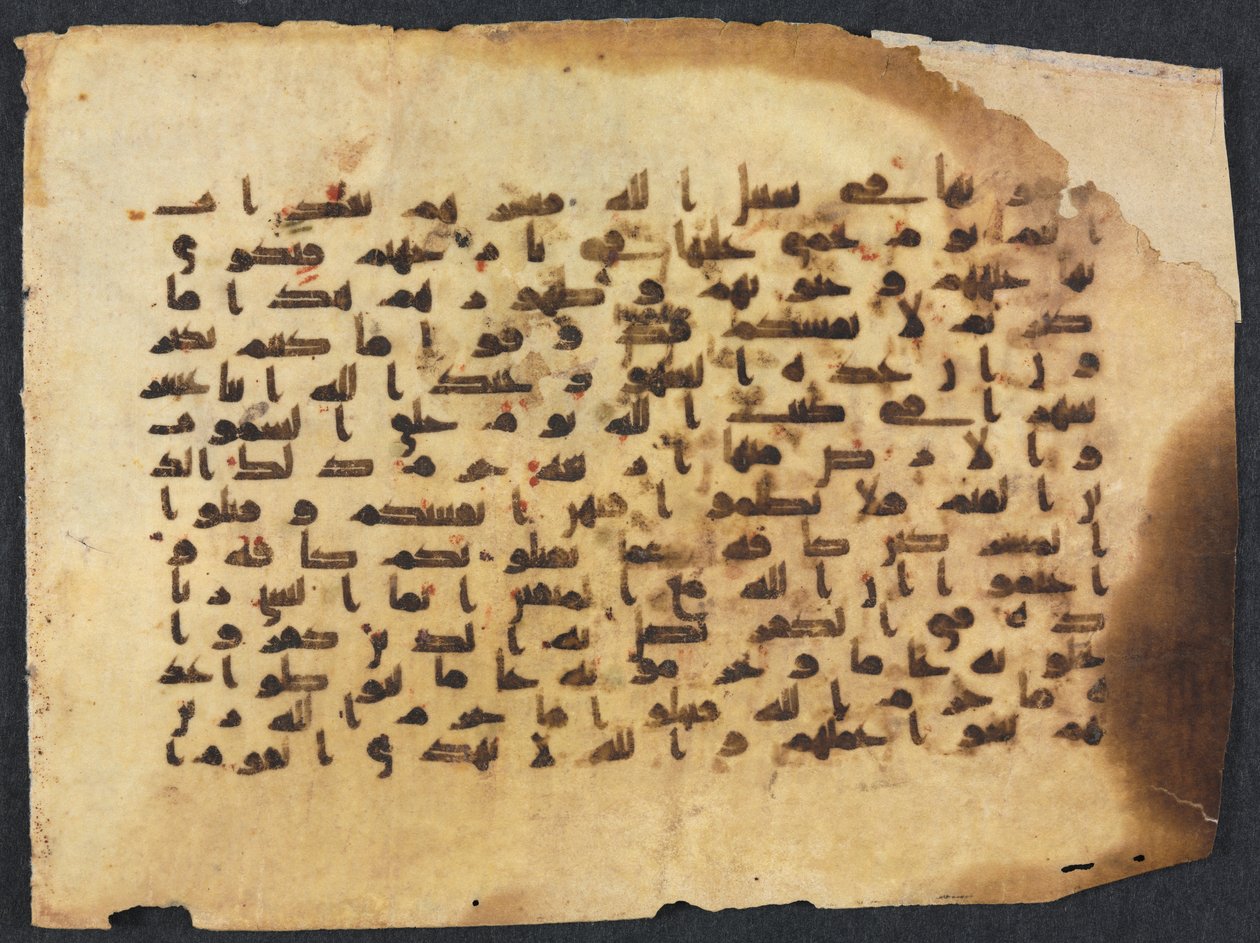 ونها في سبيل الله فبشرهم بعذاب
اليم يوم يحمى عليها في نار جهنم فتكوى
بها جباههم وجنوبهم وظهورهم هذا ما
كنزتم لانفسكم فذوقوا ما كنتم تكنز
ون ان عدة الشهور عند الله اثنا عشر
شهرا في كتب الله يوم خلق السموت
والارض منها اربعة حرم ذلك الد
ين القيم فلا تظلموا فيهن انفسكم وقتلوا
المشركين كافة كما يقتلونكم كافة و
اعلموا ان الله مع المتقين انما النسي زيا
دة في الكفر يضل به الذين كفروا
يحلونه عاما ويحرمونه عاما ليوطوا عد
ة ما حرم الله فيحلوا ما حرم الله زين
لهم سو اعملهم والله لا يهدي القوم ا